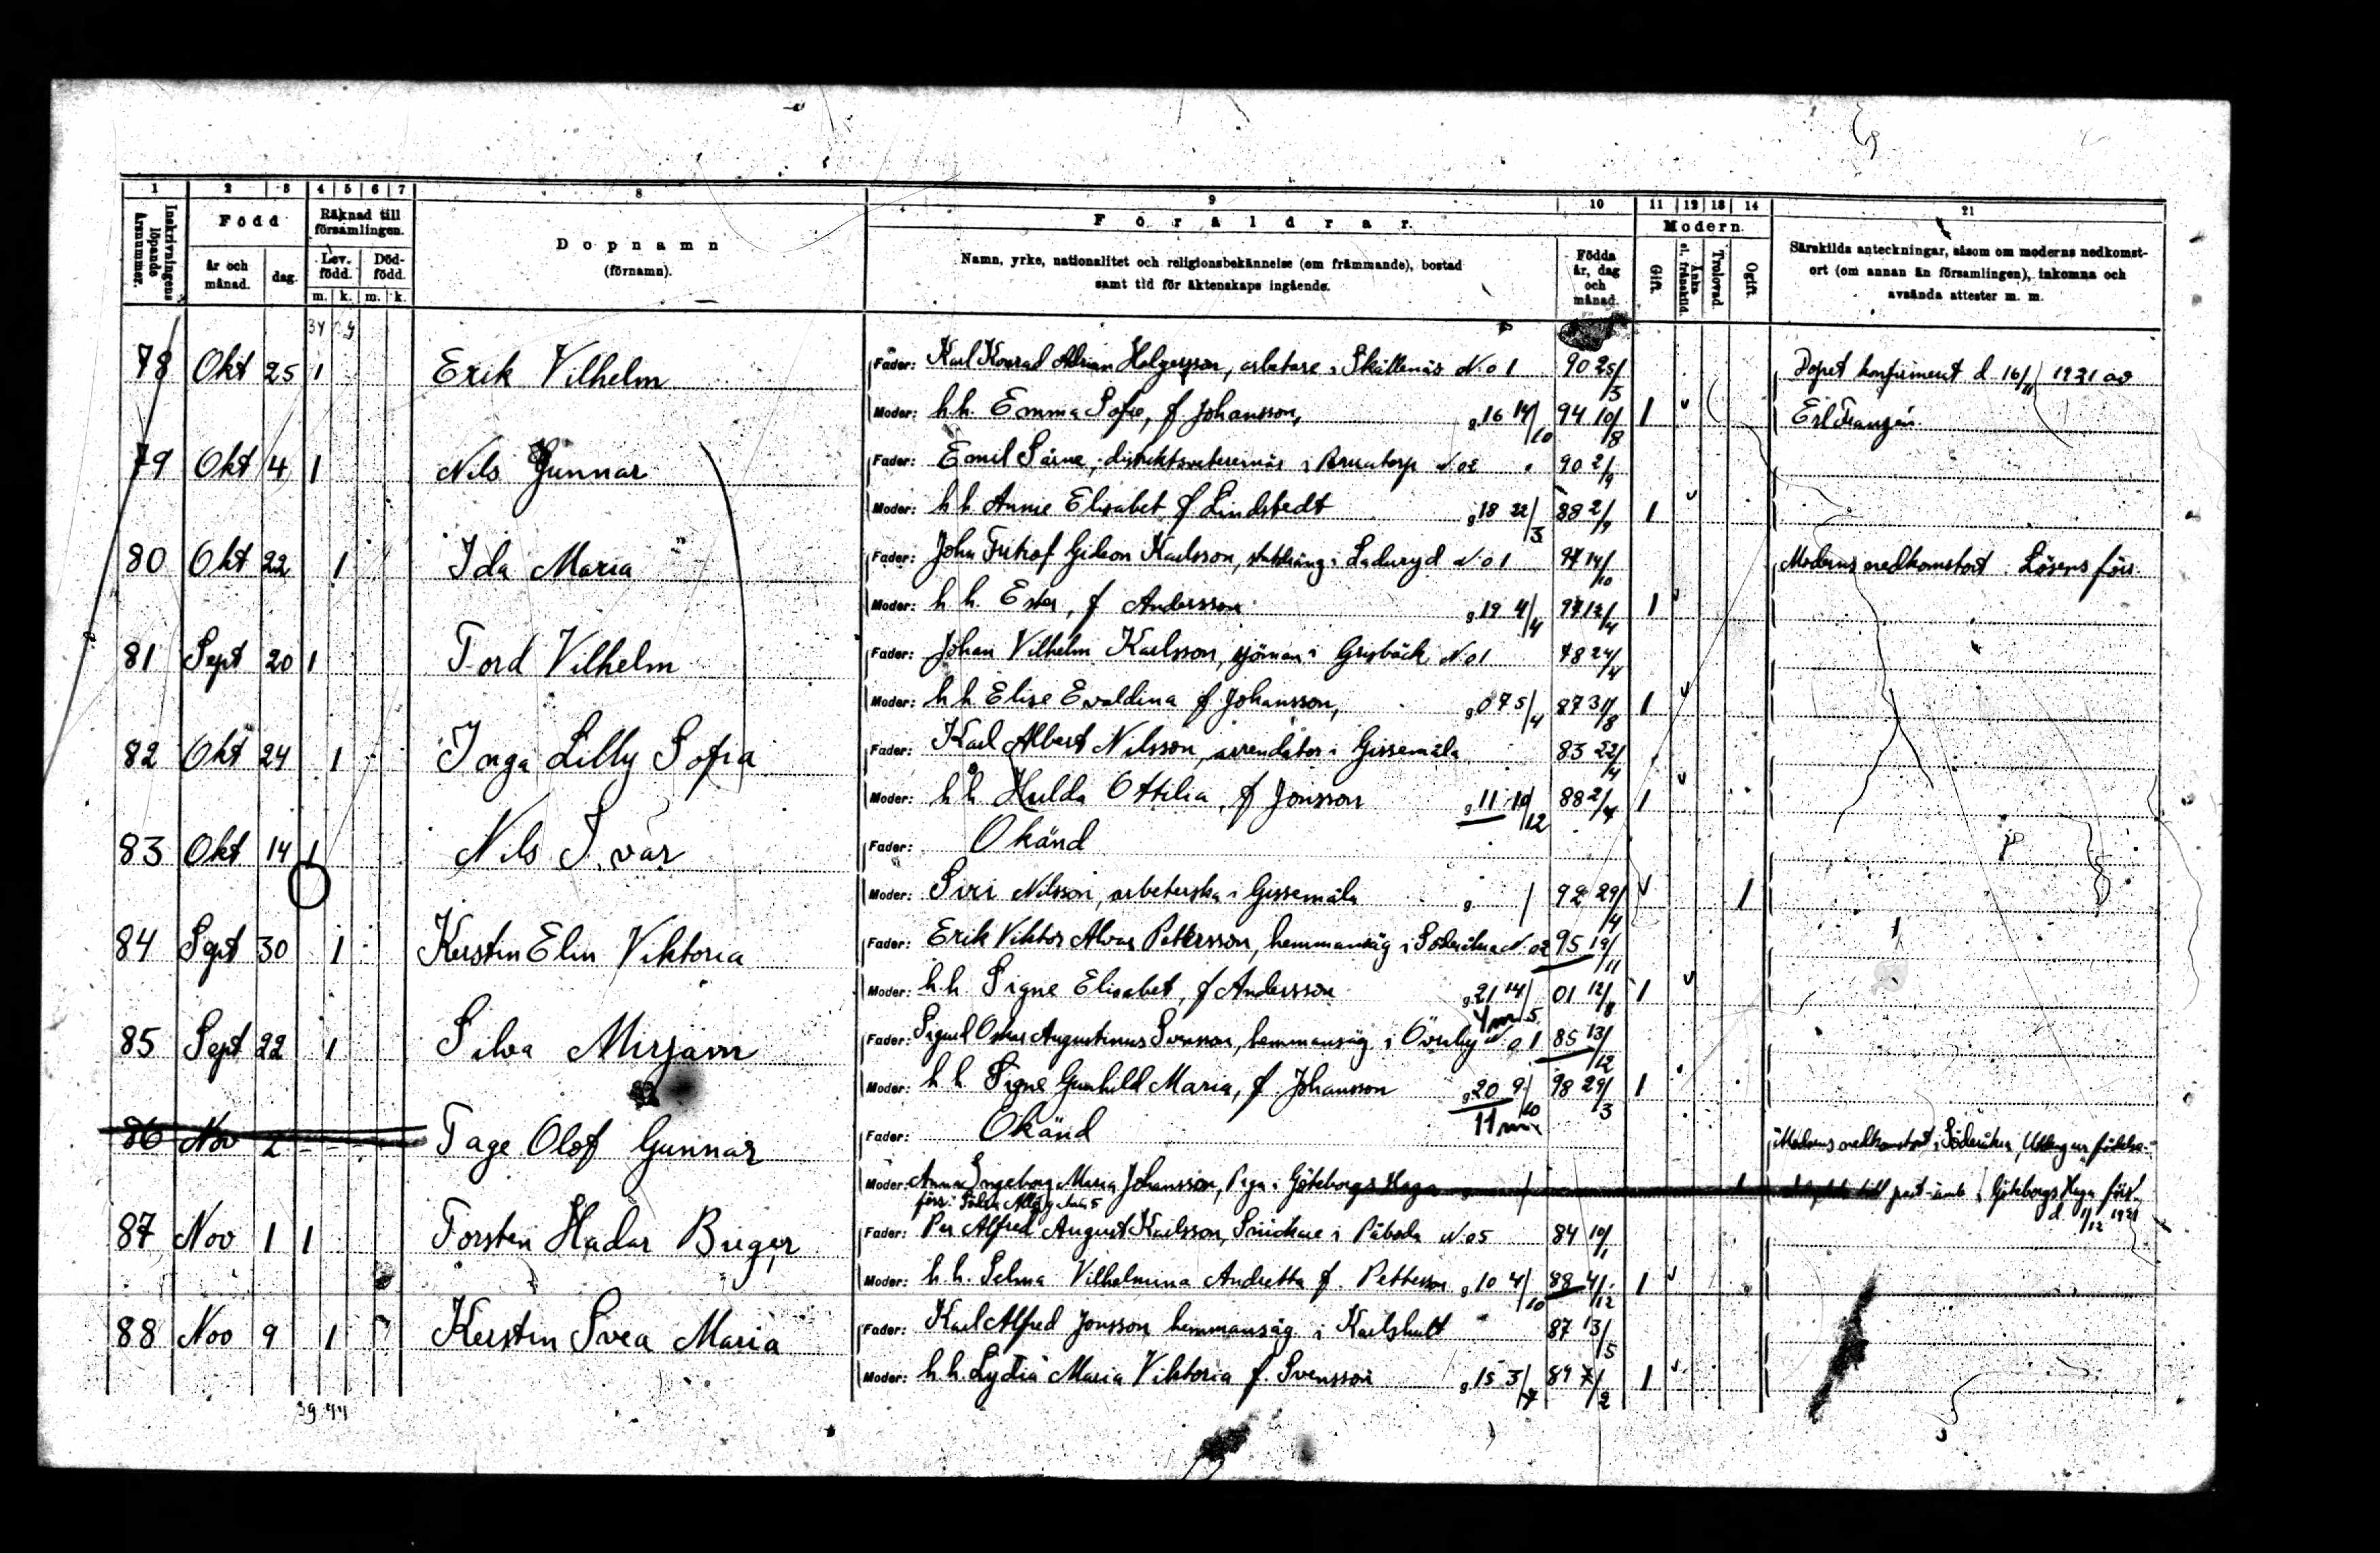 1 2 3 4 5 6 7 8 9 10 11 12 13 14 21
Inskrivningens löpande årsnummer.
Född
år och månad.
dag.
Räknad till församlingen.
Lev. född.
Död-född.
m. k. m. k.
Dopnamn
(förnamn).
Föräldrar.
Namn, yrke, nationalitet och religionsbekännelse (om främmande), bostad
samt tid för äktenskaps ingående.
Födda år, dag och månad.
Modern
Gift.
Änka el. frånskild.
Trolovad.
Ogift.
Särskilda anteckningar, såsom om moderns nedkomst-
ort (om annan än församlingen), inkomna och
avsända attester m. m.
34
78 Okt 25 1 Erik Vilhelm Fader: Karl Konrad Adrian Holgersson, arbetare i Skällenäs No 1 90 25/3 Dopet konfirmerat d 16/11 1921 av
Moder: h.h. Emma Sofie, f. Johansson, g. 16 14/10 94 10/8 1 Erl Franzén.
79 Okt 4 1 Nils Gunnar Fader: Emil Särne, distriktsveterinär i Bruatorp No 2 90 2/9
Moder: h.h. Annie Elisabet f Lindstedt g. 18 22/3 88 2/9 1
80 Okt 22 1 Ida Maria Fader: John Fritiof Gideon Karlsson, i Laduryd No 1 97 14/10 Moderns nedkomstort: Lösens förs.
Moder: h.h. Ester, f Andersson g. 19 4/4 97 12/4 1
81 Sept 20 1 Tord Vilhelm Fader: Johan Vilhelm Karlsson, sjöman i Grisbäck No 1 78 24/4
Moder: h.h. Elise Evaldina f Johansson, g. 07 5/4 87 31/8 1
82 Okt 24 1 Inga Lilly Sofia Fader: Karl Albert Nilsson, arrendator i Gissemåla 83 22/4
Moder: h.h. Hulda Ottilia, f Jonsson g. 11 10/12 88 2/4 1
83 Okt 14 1 Nils Ivar Fader: Okänd
Moder: Siri Nilsson, arbeterska i Gissemåla g. / 92 29/4 1
84 Sept 30 1 Kerstin Elin Viktoria Fader: Erik Viktor Alvar Pettersson, hemmansäg i Söderåkra No 2 95 19/11
Moder: h.h. Signe Elisabet, f Andersson g. 21 14/5 01 12/8 1
4 mn
85 Sept 22 1 Silva Mirjam Fader: Sigurd Oskar Augustinus Svensson, hemmansäg. i Övraby No 1 85 13/12
Moder: h.h. Signe Gunhild Maria, f. Johansson g. 20 9/10 98 29/3 1
11 mn
86 Nov 2 Tage Olof Gunnar Fader: Okänd Moderns nedkomstort i Söderåkra,
Moder: Anna Ingeborg Maria Johansson, Piga i Göteborgs Haga / 1 till past-ämb i Göteborgs Haga förs.
förs. d. 1/12 1921
87 Nov 1 1 Torsten Hadar Birger Fader: Per Alfred August Karlsson, Snickare i Påboda No 5 84 10/1
Moder: h.h. Selma Vilhelmina Andretta f. Pettersson g. 10 4/10 88 4/12 1
88 Nov 9 1 Kerstin Svea Maria Fader: Karl Alfred Jonsson hemmansäg. i Karlshult 87 13/5
Moder: h.h. Lydia Maria Viktoria f. Svensson g. 15 3/7 89 7/2 1
39 44